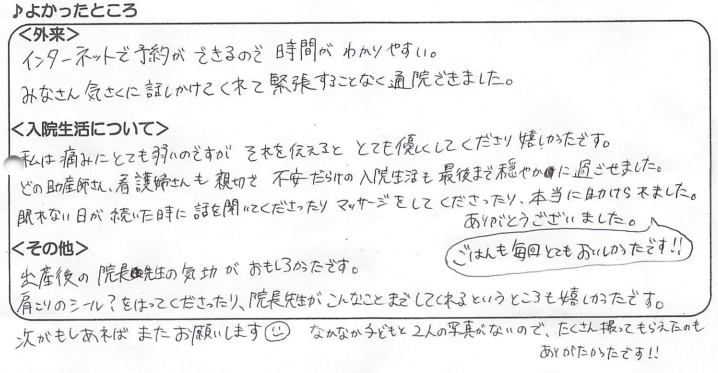 ♪よかったところ
<外来>
インターネットで予約ができるので時間がわかりやすい。
みなさん気さくに話しかけてくれて緊張することなく通院できました。
<入院生活について>
私は痛みにとても弱いのですがそれを伝えるととても優しくしてくださり嬉しかったです。
どの助産師さん、看護婦さんも親切で不安だらけの入院生活も最後まで穏やかに過ごせました。
眠れない日が続いた時に話を聞いてくださったりマッサージをしてくださったり、本当に助けられました。
ありがとうございました。
ごはんも毎回とてもおいしかったです!!
<その他>
出産後の院長先生の気功がおもしろかったです。
肩こりのシール?をはってくださったり、院長先生がこんなことまでしてくれるというところも嬉しかったです。
次がもしあればまたお願いします☺ なかなか子どもと2人の写真がないので、たくさん撮ってもらえたのも
ありがたかったです!!